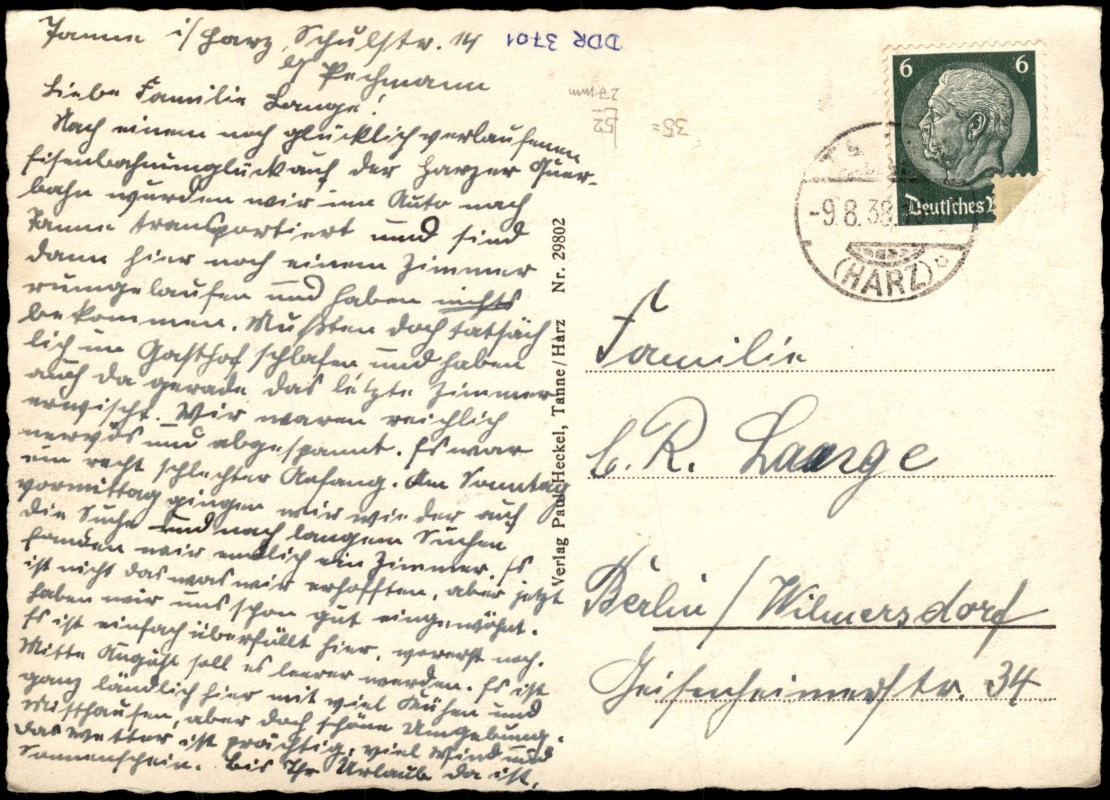 Tanne i/Harz, Schulstr. 14
b/ Pechmann
Liebe Familie Lange!
Nach einem noch glücklich verlaufenen
Eisenbahnunglück auf der Harzer Quer-
bahn wurden wir im Auto nach
Tanne transportiert und sind
dann hier nach einem Zimmer
rumgelaufen und haben nichts
bekommen. Mußten doch tatsäch
lich im Gasthof schlafen und haben
auch da gerade das letzte Zimmer
erwischt. Wir waren reichlich
nervös und abgespannt. Es war
ein recht schlechter Anfang. Am Sonntag
vormittag gingen wir wieder auf
die Suche und nach langem Suchen
fanden wir endlich ein Zimmer. Es
ist nicht das was wir erhofften, aber jetzt
haben wir uns schon gut eingewöhnt.
Es ist einfach überfüllt hier, vorerst noch.
Mitte August soll es leerer werden. Es ist
ganz ländlich hier mit viel Kühen und
Misthaufen, aber doch schöne Umgebung.
Das Wetter ist prächtig, viel Wind und
Sonnenschein. Bis Ihr Urlaub da ist,
DDR 3701
27 mm
52
35=
Verlag Paul Heckel, Tanne/Harz Nr. 29802
6 6
Deutsches
-9.8.39
(HARZ)
Familie
C. R. Lange
Berlin/Wilmersdorf
Geisenheimerstr. 34